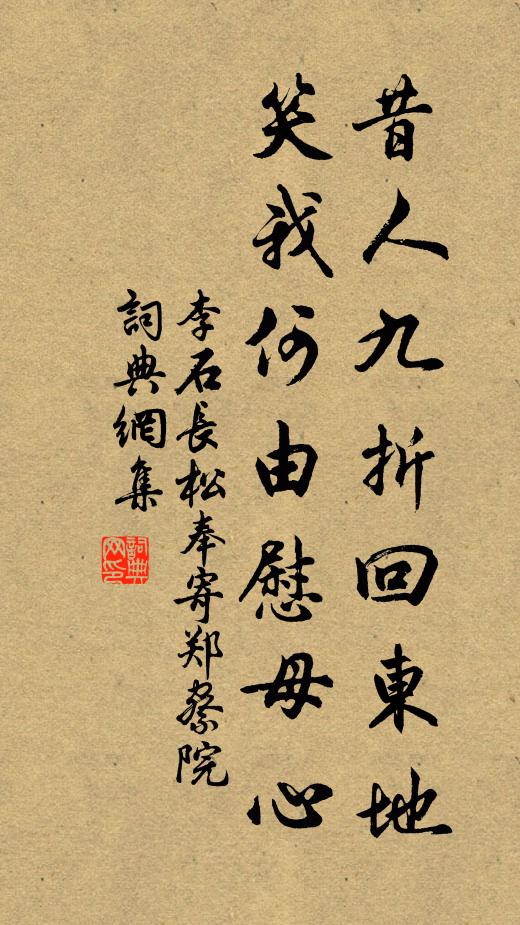 昔人九折回東地
笑我何由慰母心
李石長松奉寄郑察院
詞典網集
詞典网印